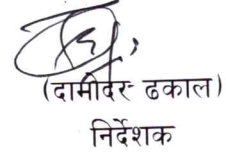 (दामोदर ढकाल)
निर्देशक